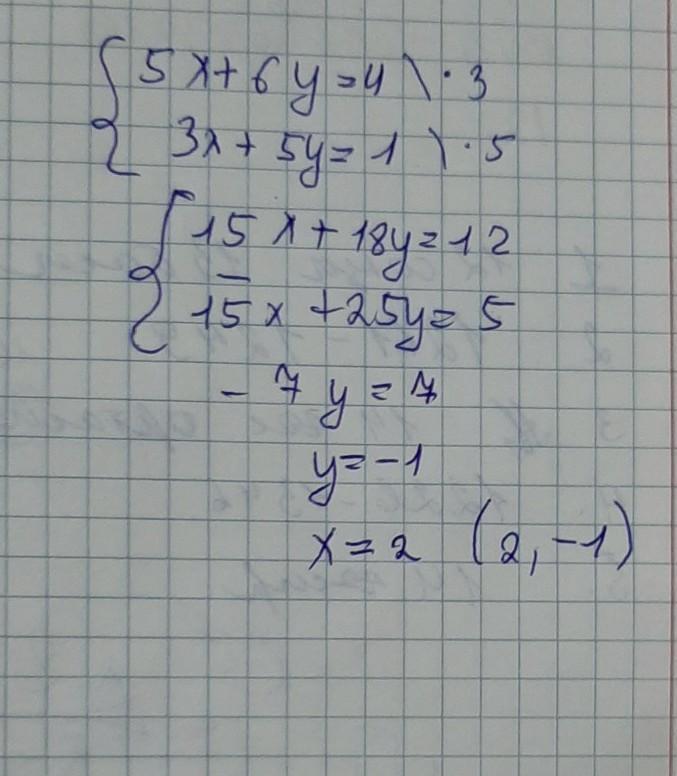 5x+6y=4 \ ·3
3x+5y=1 \ ·5
15x+18y=12
−
15x+25y=5
-7y=7
y=-1
x=2 (2,-1)